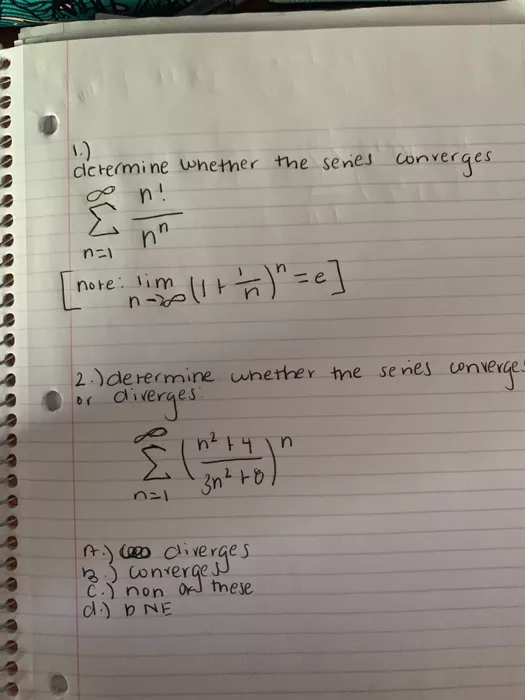 1.)
determine whether the series converges
∞ n!
Σ n^n
n=1
[note: lim (1 + 1/n)^n = e]
n→∞
2.) determine whether the series converges
or diverges:
∞
Σ ((n² + 4)/(3n² + 8))^n
n=1
A.) diverges
B.) converges
C.) non of these
d.) DNE